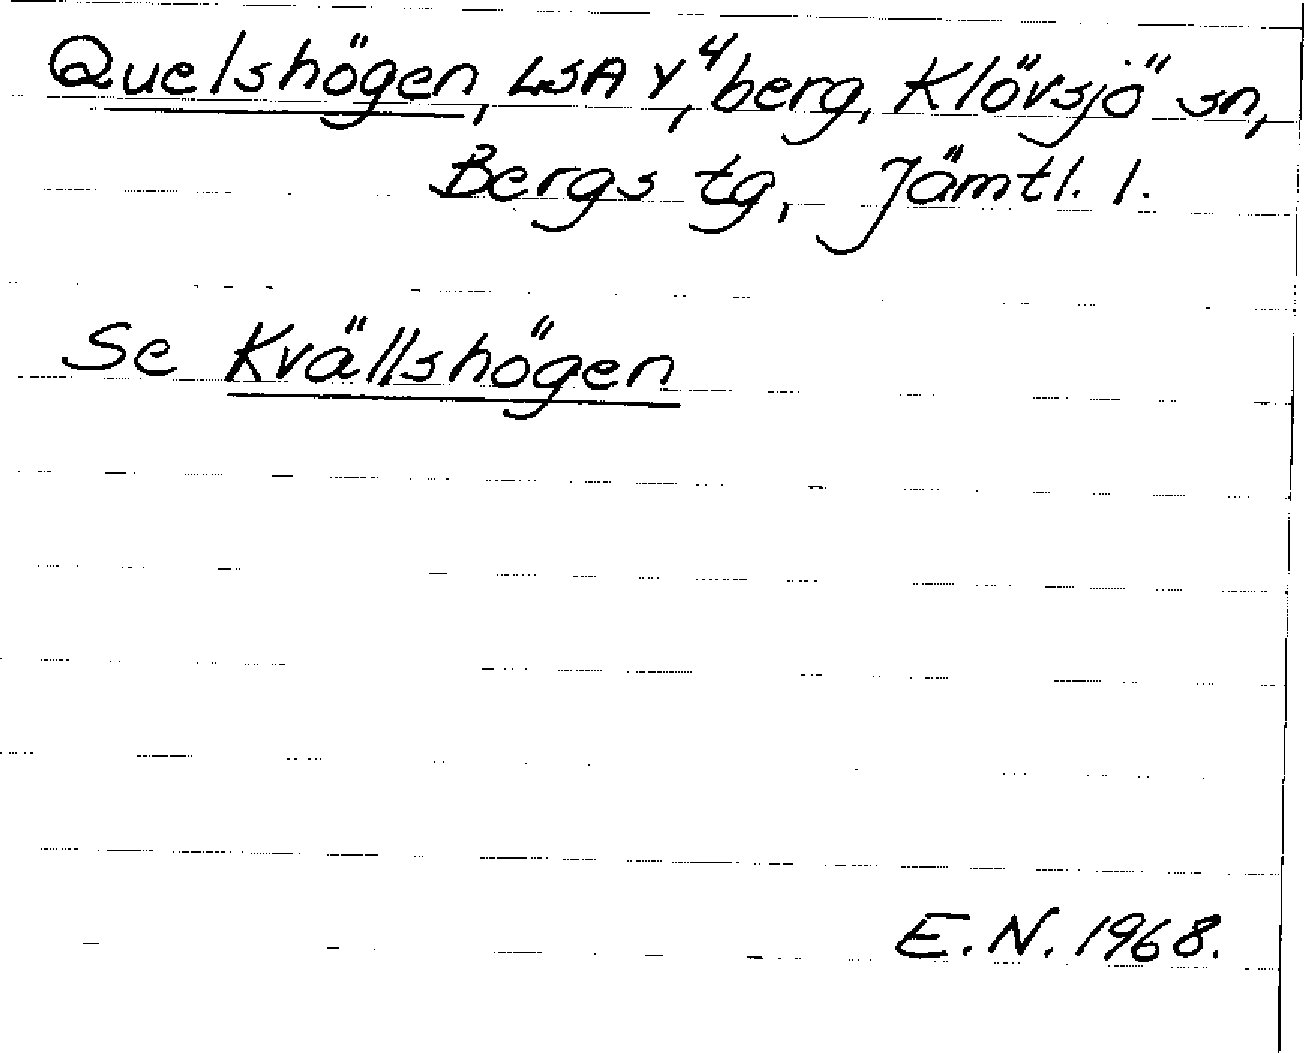 Quelshögen, LSA Y⁴, berg, Klövsjö sn,
Bergs tg, Jämtl. l.
Se Kvällshögen
E.N. 1968.